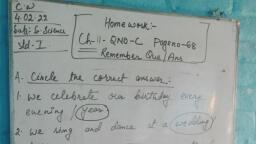 C.W
4.02.22
Subj:- S. Science
std - I
Home work:-
Ch-11- QNO-C Pageno-68
Remember Que/Ans
A. Circle the correct answer:-
1. We celebrate our birthday every
evening / year
2. We sing and dance at a wedding